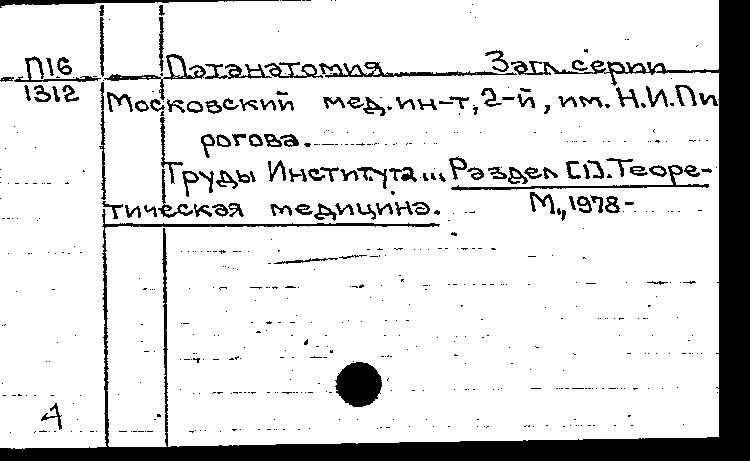 П16 Патанатомия Загл. серии
1312 Московский мед. ин-т, 2-й, им. Н.И. Пи
рогова.
Труды Института... Раздел [1]. Теоре-
тическая медицина. М., 1978-
4